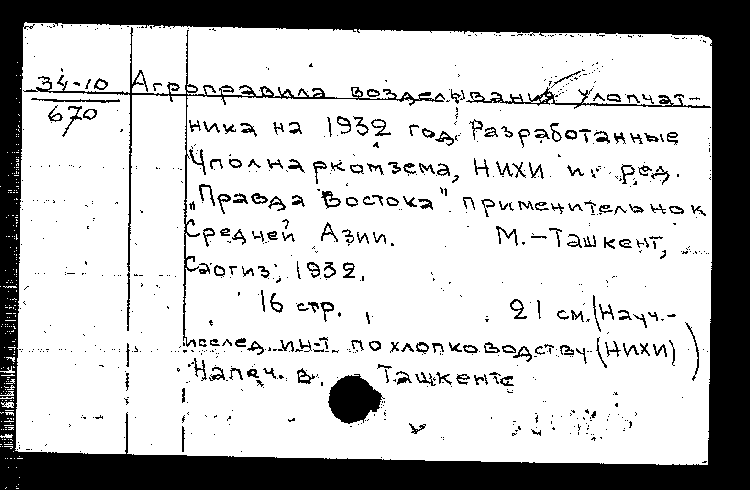 34-10
670
Агроправила возделывания хлопчат-
ника на 1932 год. Разработанные
Уполнаркомзема, НИХИ и ред.
„Правда Востока" применительно к
Средней Азии. М.-Ташкент,
Саогиз, 1932.
16 стр. 21 см. (Науч.-
исслед. ин-т. по хлопководству (НИХИ))
Напеч. в. Ташкенте